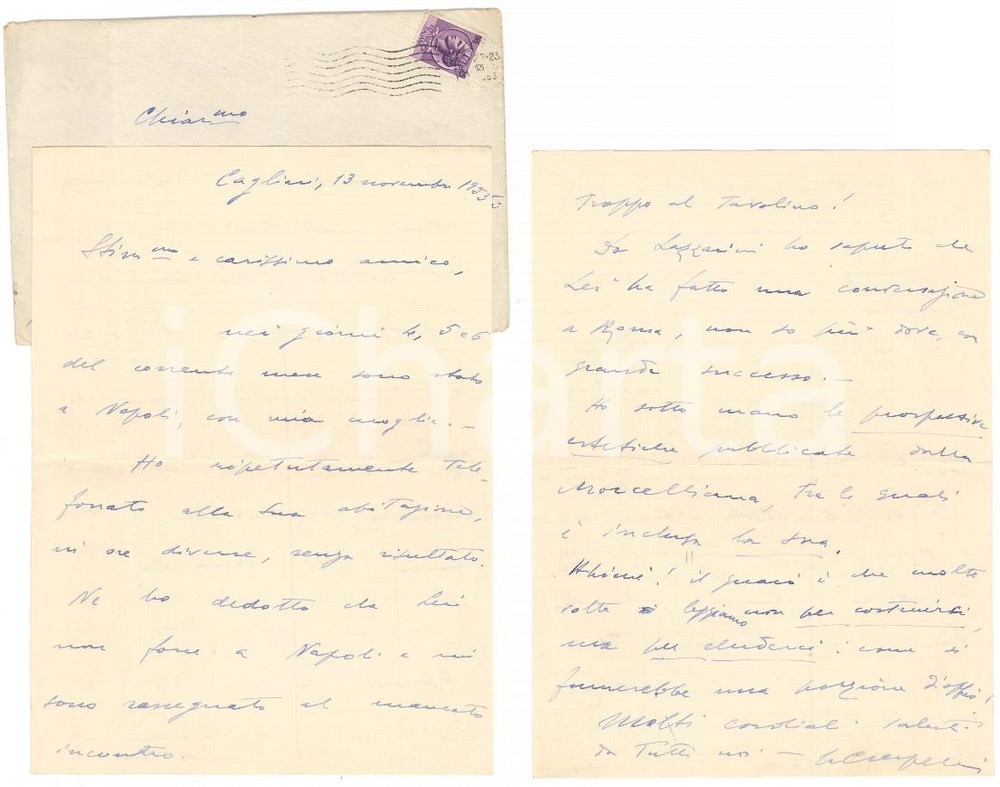 Chiar.mo
Cagliari, 13 novembre 1953
Stim.mo e carissimo amico,
nei giorni 4, 5 e 6
del corrente mese sono stato
a Napoli, con mia moglie. -
Ho ripetutamente tele-
fonato alla Sua abitazione,
in ore diverse, senza risultato.
Ne ho dedotto che Lei
non fosse a Napoli e mi
sono rassegnato al mancato
incontro.
troppo al tavolino!
Da Lazzarini ho saputo che
Lei ha fatto una conversazione
a Roma, non so più dove, con
grande successo. -
Ho sotto mano le prospettive
estetiche pubblicate dalla
Morcelliana, tra le quali
è inclusa la sua.
Ahimè! il guaio è che molte
volte leggiamo non per costruirsi,
ma per eluderci: come si
fumerebbe una porzione d'oppio!
Molti cordiali saluti
da tutti noi -
iCharta